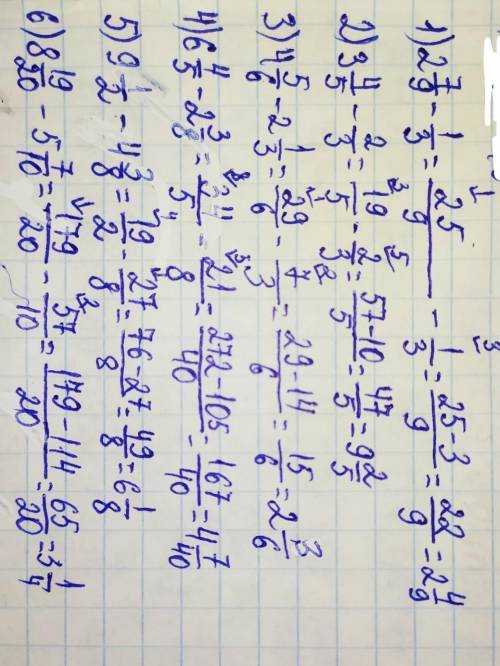 1) 2 7/9 - 1/3 = 25/9 - 1/3 = (25-3)/9 = 22/9 = 2 4/9
2) 3 4/5 - 2/3 = 19/5 - 2/3 = (57-10)/5 = 47/5 = 9 2/5
3) 4 5/6 - 2 1/3 = 29/6 - 7/3 = (29-14)/6 = 15/6 = 2 3/6
4) 6 4/5 - 2 3/8 = 34/5 - 21/8 = (272-105)/40 = 167/40 = 4 7/40
5) 9 1/2 - 4 3/8 = 19/2 - 27/8 = (76-27)/8 = 49/8 = 6 1/8
6) 8 19/20 - 5 7/10 = 179/20 - 57/10 = (179-114)/20 = 65/20 = 3 1/4